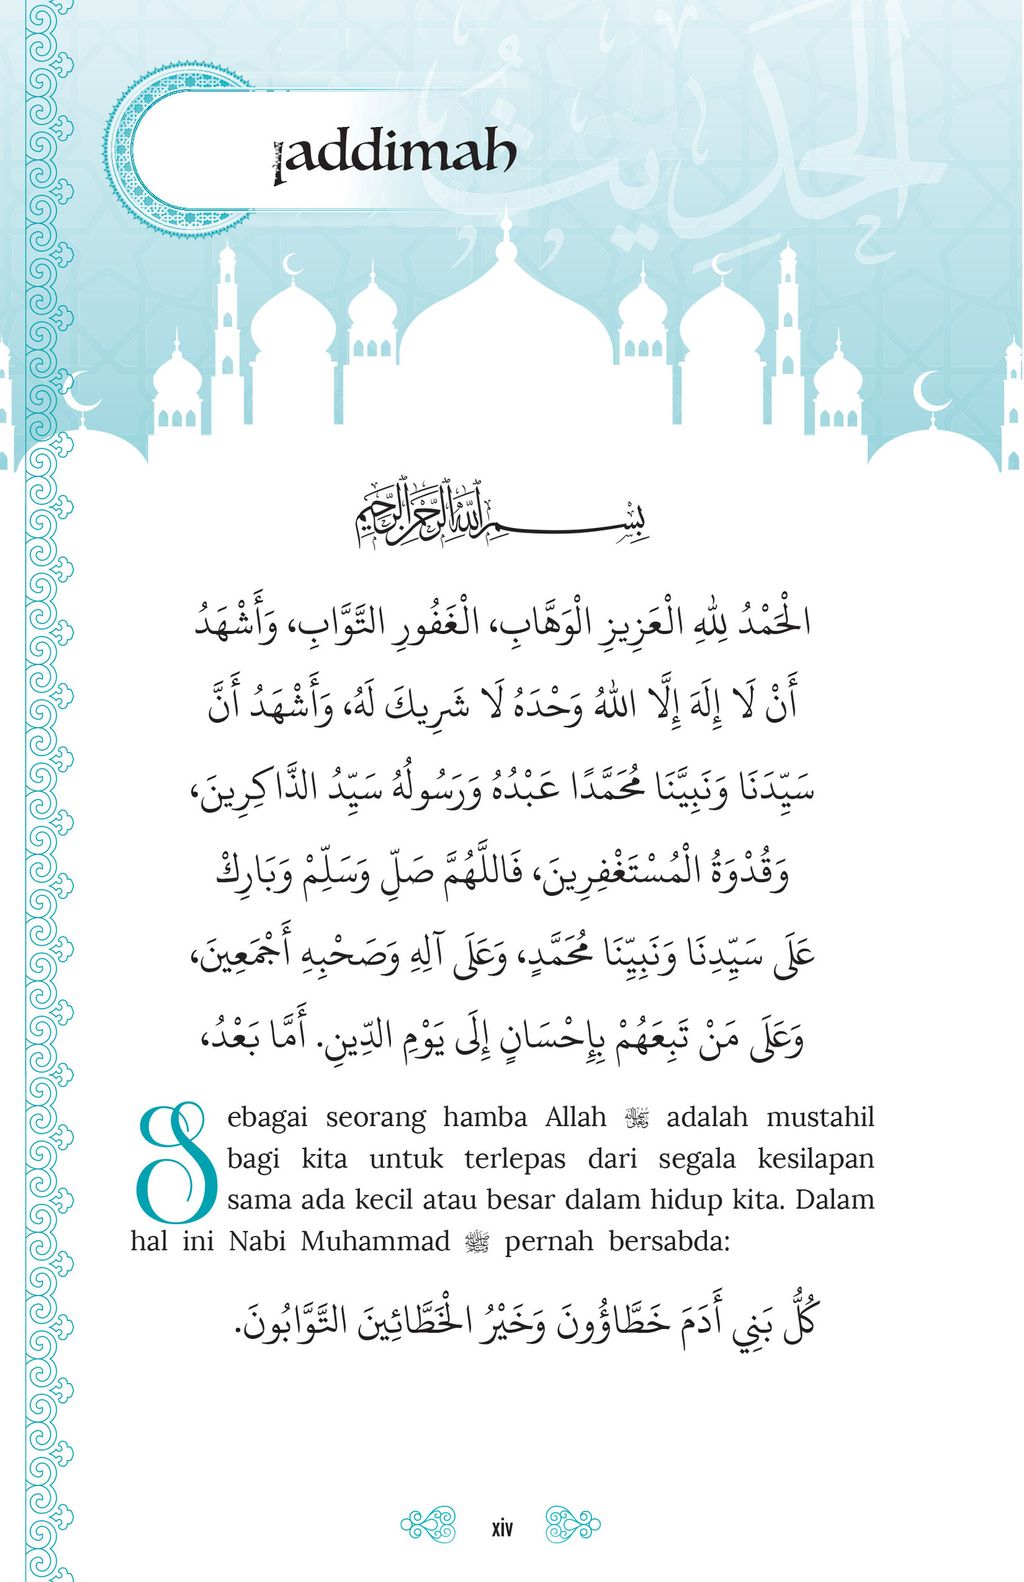 addimah
الحديث
بِسْمِ اللهِ الرَّحْمَنِ الرَّحِيمِ
الْحَمْدُ لِلَّهِ الْعَزِيزِ الْوَهَّابِ، الْغَفُورِ التَّوَّابِ، وَأَشْهَدُ
أَنْ لَا إِلَهَ إِلَّا اللهُ وَحْدَهُ لَا شَرِيكَ لَهُ، وَأَشْهَدُ أَنَّ
سَيِّدَنَا وَنَبِيَّنَا مُحَمَّدًا عَبْدُهُ وَرَسُولُهُ سَيِّدُ الذَّاكِرِينَ،
وَقُدْوَةُ الْمُسْتَغْفِرِينَ، فَاللَّهُمَّ صَلِّ وَسَلِّمْ وَبَارِكْ
عَلَى سَيِّدِنَا وَنَبِيِّنَا مُحَمَّدٍ، وَعَلَى آلِهِ وَصَحْبِهِ أَجْمَعِينَ،
وَعَلَى مَنْ تَبِعَهُمْ بِإِحْسَانٍ إِلَى يَوْمِ الدِّينِ. أَمَّا بَعْدُ،
Sebagai seorang hamba Allah ﷻ adalah mustahil
bagi kita untuk terlepas dari segala kesilapan
sama ada kecil atau besar dalam hidup kita. Dalam
hal ini Nabi Muhammad ﷺ pernah bersabda:
كُلُّ بَنِي أَدَمَ خَطَّاؤُونَ وَخَيْرُ الْخَطَّائِينَ التَّوَّابُونَ.
xiv